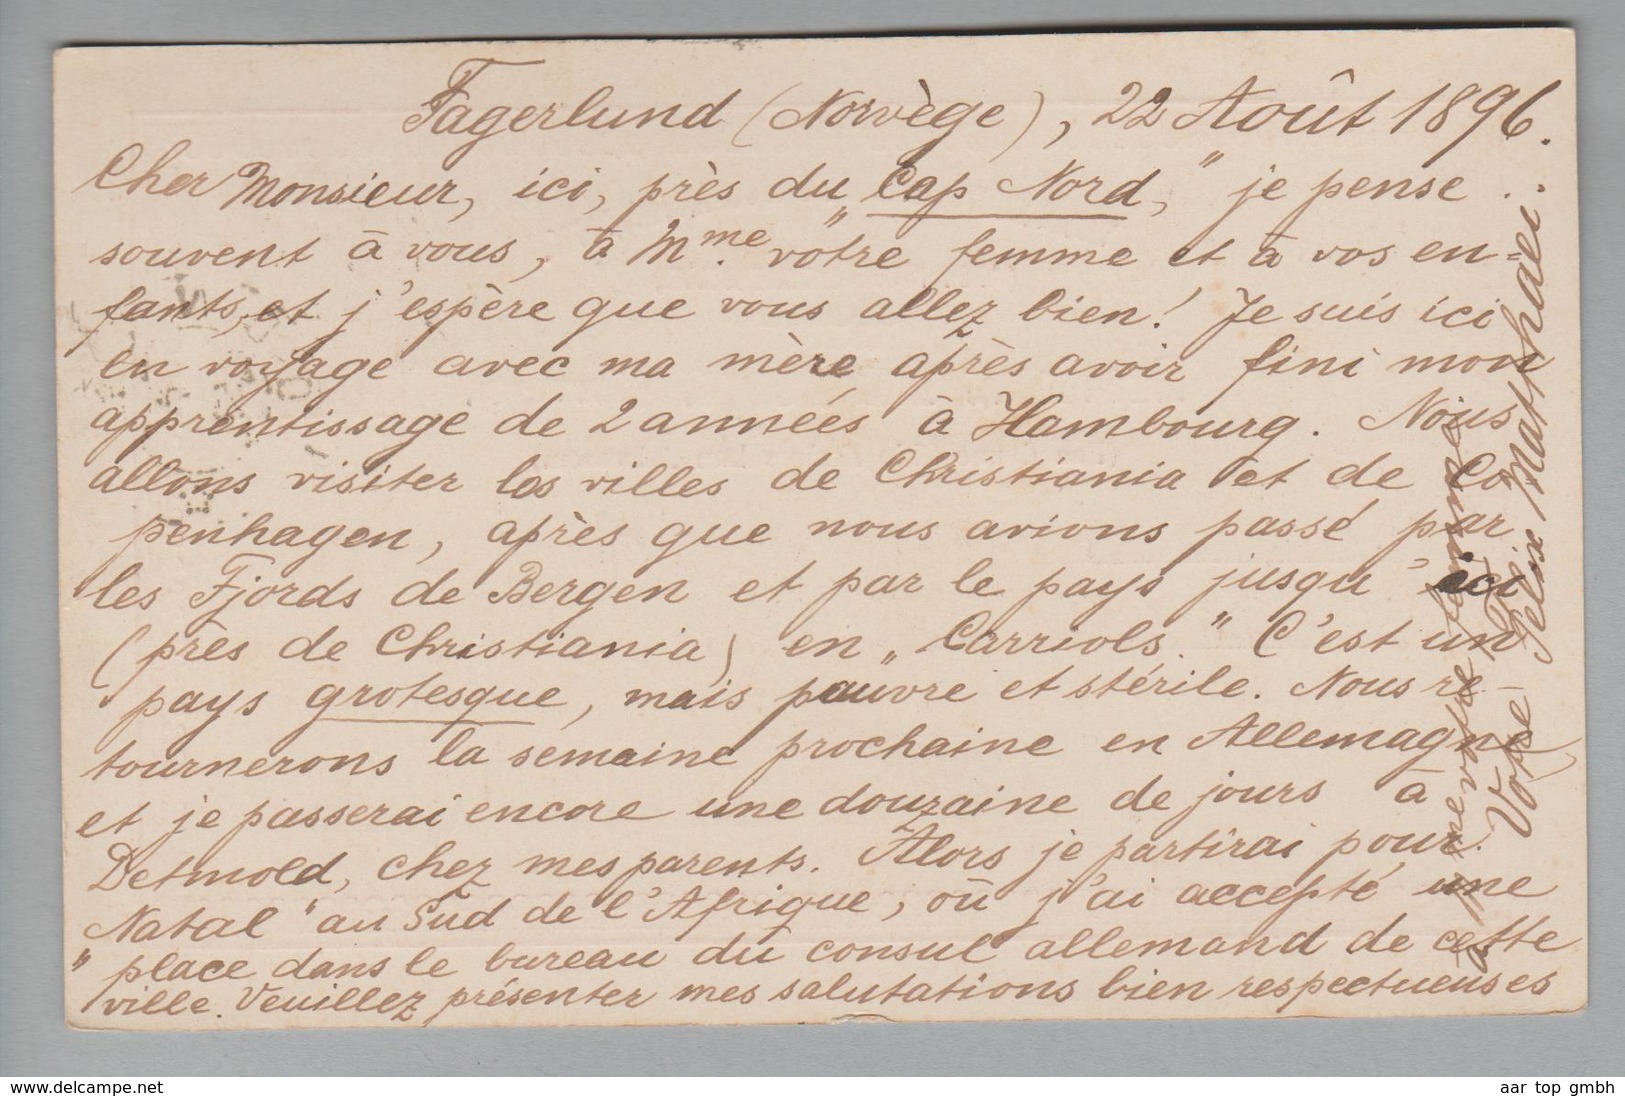 Fagerlund (Norvège), 22 Août 1896.
Cher Monsieur, ici, près du „Cap Nord," je pense
souvent à vous, à Mme. votre femme et à vos en=
fants, et j'espère que vous allez bien! Je suis ici
en voyage avec ma mère après avoir fini mon
apprentissage de 2 années à Hambourg. Nous
allons visiter les villes de Christiania et de Co
penhagen, après que nous avions passé par
les Fjords de Bergen et par le pays jusqu'ici
(près de Christiania) en „Carriols." C'est un
pays grotesque, mais pauvre et stérile. Nous re-
tournerons la semaine prochaine en Allemagne
et je passerai encore une douzaine de jours à
Detmold, chez mes parents. Alors je partirai pour
„Natal" au Sud de l'Afrique, où j'ai accepté une
place dans le bureau du consul allemand de cette
ville. Veuillez présenter mes salutations bien respectueuses
à Mme votre femme
Votre
Felix Matthaei.
www.delcampe.net
aar top gmbh